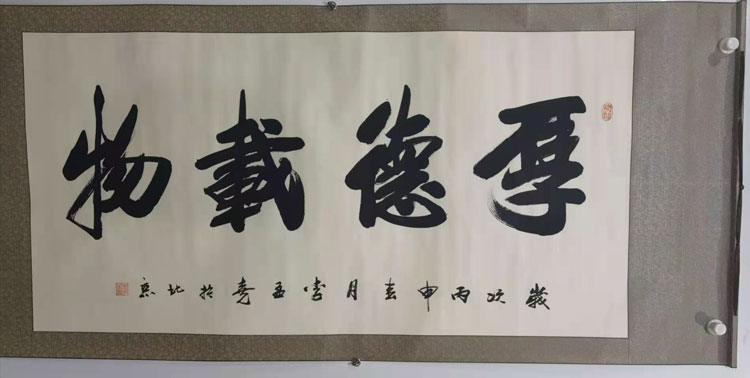 厚德載物
歲次丙申春月李孟堯於北京